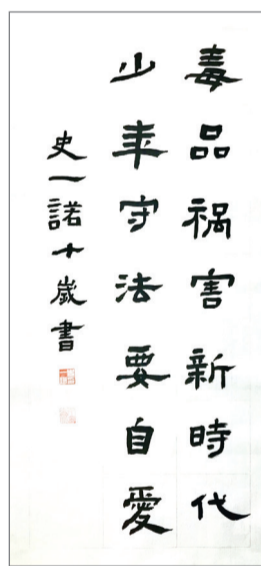 毒品祸害新時代
少年守法要自愛
史一諾十歲書